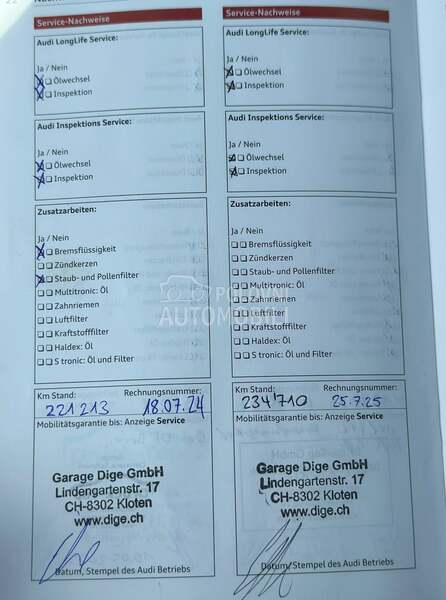 Service-Nachweise
Audi LongLife Service:
Ja / Nein
Ölwechsel
Inspektion
Audi Inspektions Service:
Ja / Nein
Ölwechsel
Inspektion
Zusatzarbeiten:
Ja / Nein
Bremsflüssigkeit
Zündkerzen
Staub- und Pollenfilter
Multitronic: Öl
Zahnriemen
Luftfilter
Kraftstofffilter
Haldex: Öl
S tronic: Öl und Filter
Km Stand: Rechnungsnummer:
221 213 18.07.24
Mobilitätsgarantie bis: Anzeige Service
Garage Dige GmbH
Lindengartenstr. 17
CH-8302 Kloten
www.dige.ch
Datum, Stempel des Audi Betriebs
Service-Nachweise
Audi LongLife Service:
Ja / Nein
Ölwechsel
Inspektion
Audi Inspektions Service:
Ja / Nein
Ölwechsel
Inspektion
Zusatzarbeiten:
Ja / Nein
Bremsflüssigkeit
Zündkerzen
Staub- und Pollenfilter
Multitronic: Öl
Zahnriemen
Luftfilter
Kraftstofffilter
Haldex: Öl
S tronic: Öl und Filter
Km Stand: Rechnungsnummer:
234'710 25.7.25
Mobilitätsgarantie bis: Anzeige Service
Garage Dige GmbH
Lindengartenstr. 17
CH-8302 Kloten
www.dige.ch
Datum, Stempel des Audi Betriebs
POLOVNI
AUTOMOBILI